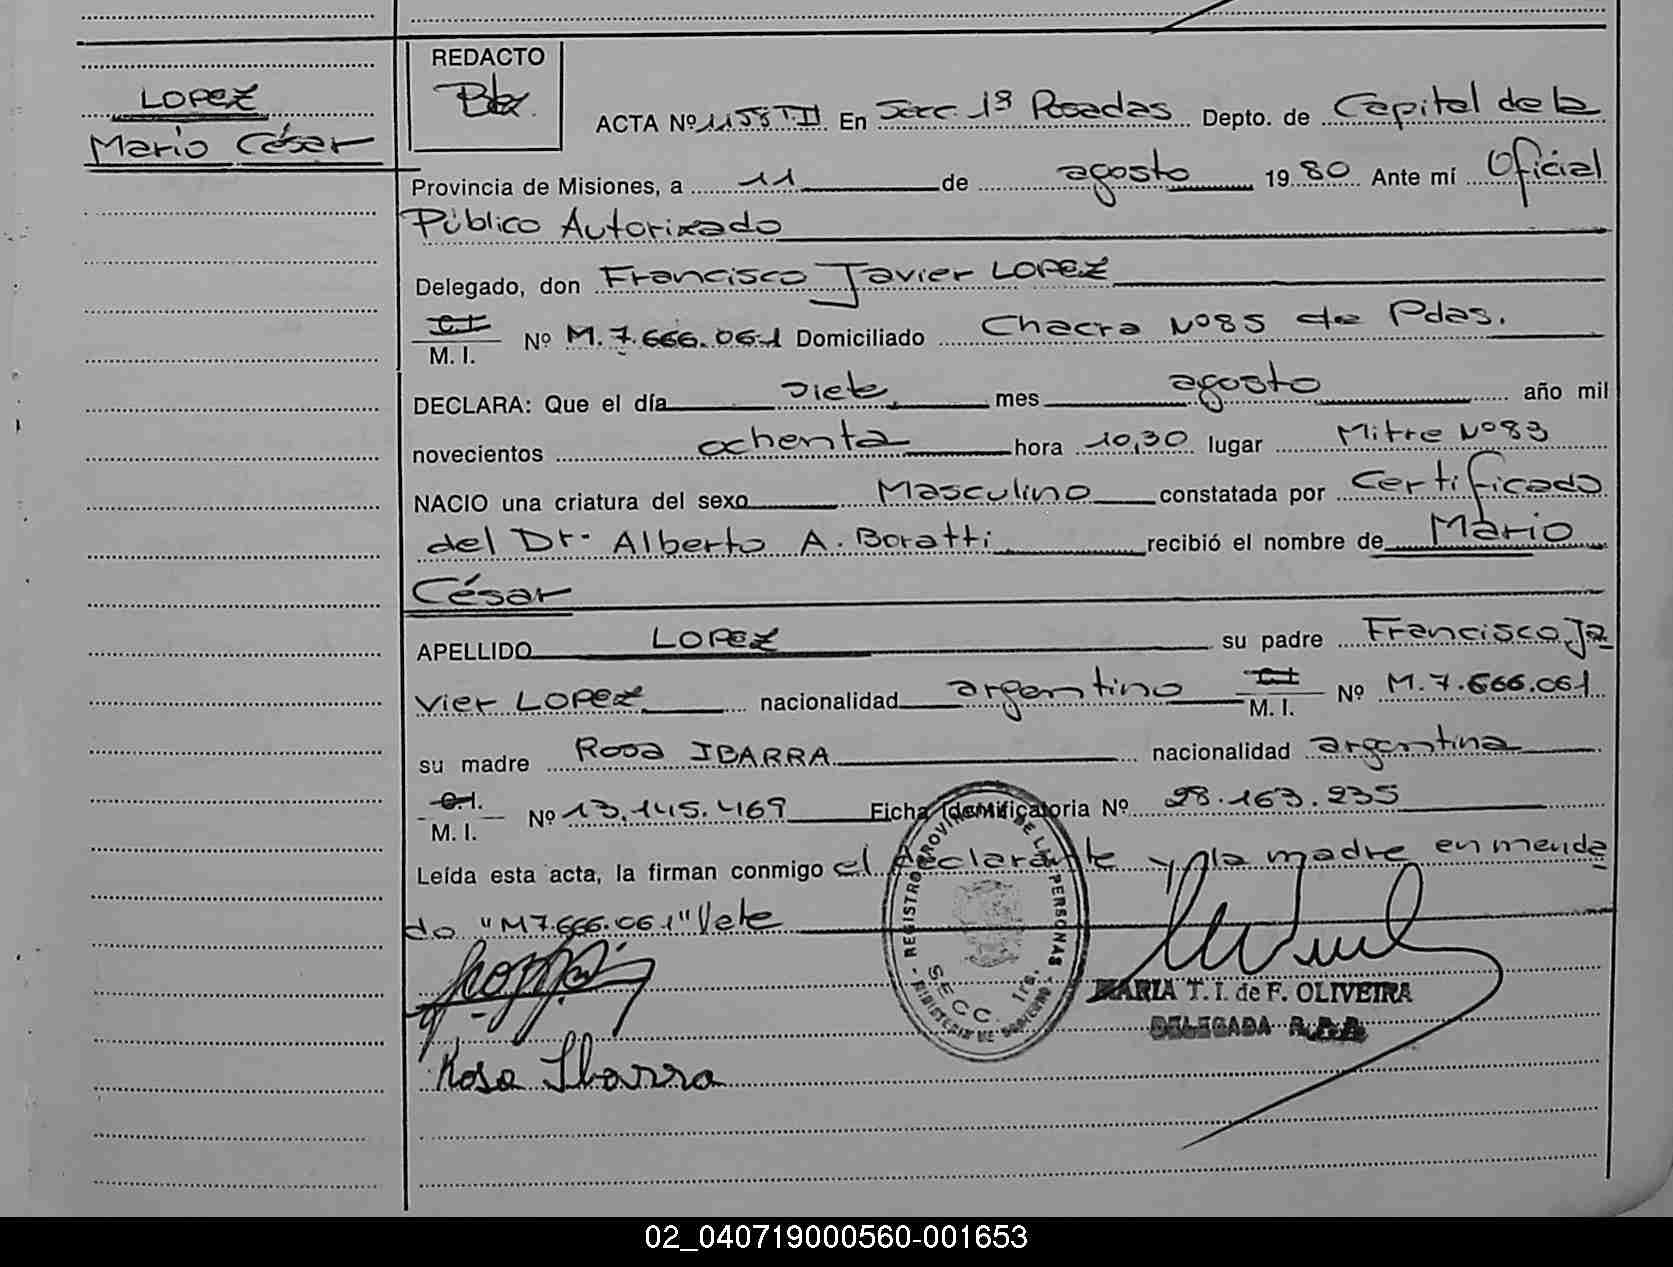 LOPEZ
Mario César
REDACTO
ACTA Nº 1158 T.II En Secc. 1ª Posadas Depto. de Capital de la
Provincia de Misiones, a 11 de agosto 1980 Ante mí Oficial
Público Autorizado
Delegado, don Francisco Javier LOPEZ
C.I.
M. I. Nº M.7.666.061 Domiciliado Chacra Nº85 de Pdas.
DECLARA: Que el día siete mes agosto año mil
novecientos ochenta hora 10,30 lugar Mitre Nº83
NACIO una criatura del sexo Masculino constatada por Certificado
del Dr. Alberto A. Boratti recibió el nombre de Mario
César
APELLIDO LOPEZ su padre Francisco Ja
vier LOPEZ nacionalidad argentino C.I. M. I. Nº M.7.666.061
su madre Rosa IBARRA nacionalidad argentina
C.I.
M. I. Nº 13.145.469 Ficha Identificatoria Nº 28.163.235
Leída esta acta, la firman conmigo el declarante y la madre enmenda
do "M7.666.061" Vele
REGISTRO PROVINCIAL DE LAS PERSONAS
SECC. 1ra.
MINISTERIO DE GOBIERNO
MARIA T. I. de F. OLIVEIRA
DELEGADA
Rosa Ibarra
02_040719000560-001653